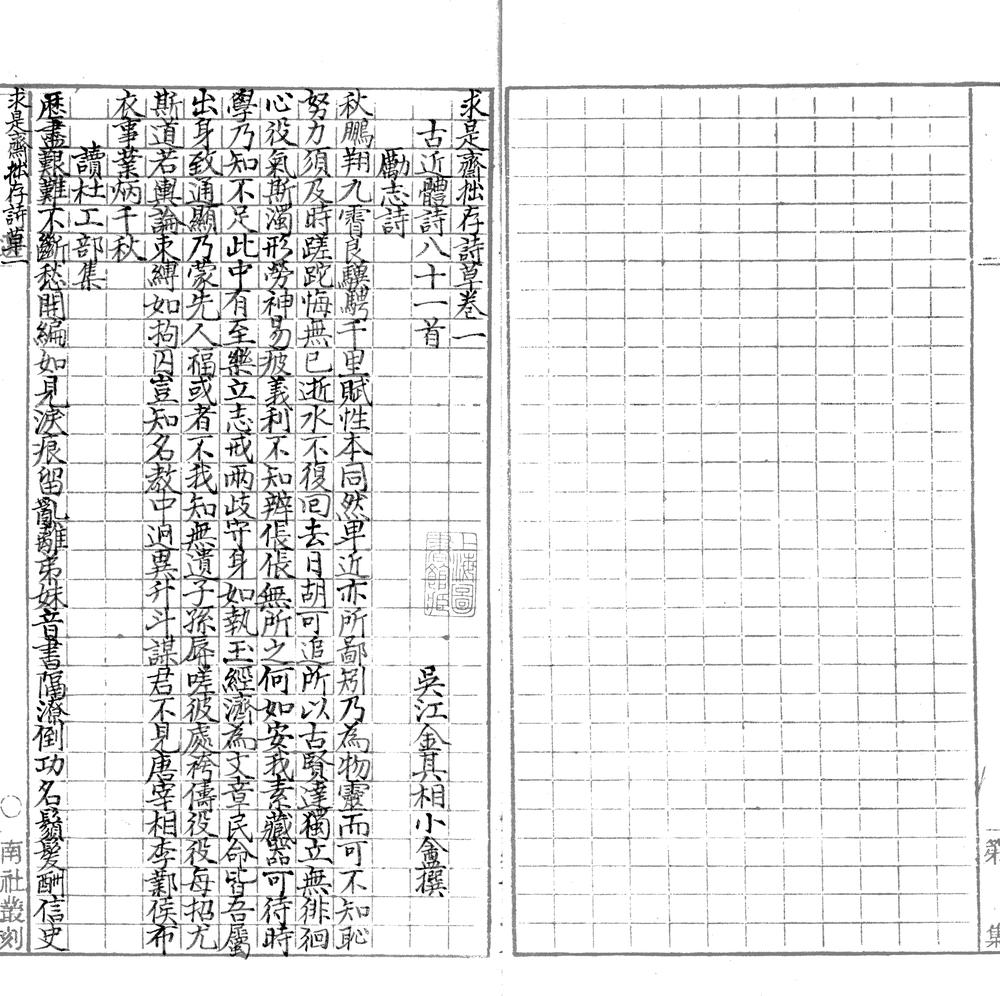 求是齋拙存詩草卷一
古近體詩八十一首
吳江金其相小盦撰
勵志詩
秋鵬翔九霄良驥騁千里賦性本同然卑近亦所鄙矧乃為物靈而可不知恥
努力須及時蹉跎悔無已逝水不復回去日胡可追所以古賢達獨立無徘徊
心役氣斯濁形勞神易疲義利不知辨倀倀無所之何如安我素藏器可待時
學乃知不足此中有至樂立志戒兩歧守身如執玉經濟為文章民命皆吾屬
出身致通顯乃蒙先人福或者不我知無遺子孫辱嗟彼處袴儔役役每招尤
斯道若輿論束縛如拘囚豈知名教中迥異升斗謀君不見唐宰相李鄴侯布
衣事業炳千秋
讀杜工部集
歷盡艱難不斷愁開編如見淚痕留亂離弟妹音書隔潦倒功名鬚髮酬信史
求是齋拙存詩草
一
南社叢刻
上海圖書館藏
集